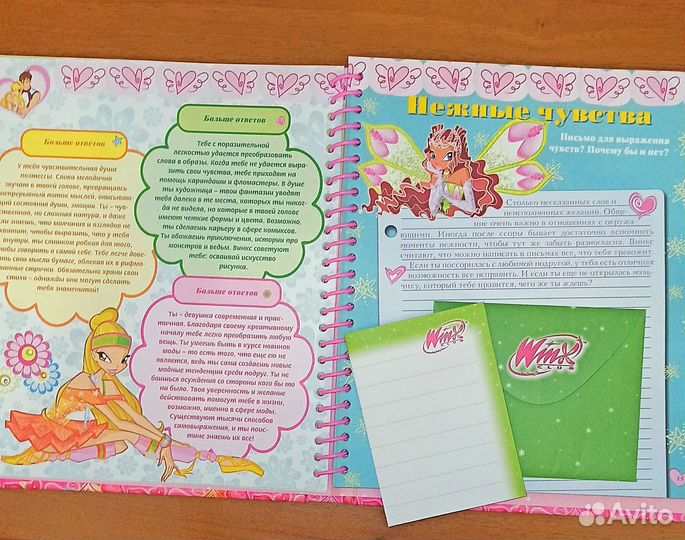 Больше ответов
У тебя чувствительная душа
поэтессы. Слова мелодично
звучат в твоей голове, превращаясь
непрерывный поток мыслей, описываю-
щий состояния души, эмоции. Ты – чув-
ственная, но сложная натура, и даже
если знаешь, что
внутри, ты слишком робкая для того,
чтобы говорить о самой себе. Тебе легче дове-
рить свои мысли бумаге, облекая их в рифмо-
ванные строчки. Обязательно храни свои
стихи – однажды они могут сделать
тебя знаменитой!
Больше ответов
Тебе с поразительной
легкостью удается преобразовать
слова в образы. Когда тебе не удается выра-
зить свои чувства, тебе приходят на
помощь карандаши и фломастеры. В душе
ты художница – твои фантазии уводят
тебя далеко в те места, которых ты никог-
да не видела, но которые в твоей голове
имеют четкие формы и цвета. Возможно,
ты сделаешь карьеру в сфере комиксов.
Ты обожаешь приключения, истории про
монстров и ведьм. Винкс советуют
тебе: осваивай искусство
рисунка.
Больше ответов
Ты – девушка современная и прак-
тичная. Благодаря своему креативному
началу тебе легко преобразить любую
вещь. Ты умеешь быть в курсе новинок
моды – то есть того, что еще ею не
является, ведь ты сама создаешь новые
модные тенденции среди подруг. Ты не
боишься осуждения со стороны кого бы то
ни было. Твоя уверенность и желание
действовать помогут тебе в жизни,
возможно, именно в сфере моды.
Существуют тысячи способов
самовыражения, и ты поис-
тине знаешь их все!
Нежные чувства
Письмо для выражения
чувств? Почему бы и нет?
Столько несказанных слов и
неисполненных желаний. Обще
ние очень важно в отношениях с окружа-
ющими. Иногда после ссоры бывает достаточно вспомнить
моменты нежности, чтобы тут же забыть разногласия. Винкс
считают, что можно написать в письмах все, что тебя тревожит.
Если ты поссорилась с любимой подругой, у тебя есть отличная
возможность все исправить. И если ты еще не открылась маль-
чику, который тебе нравится, чего же ты ждешь?
Winx
CLUB
Winx
CLUB
Avito